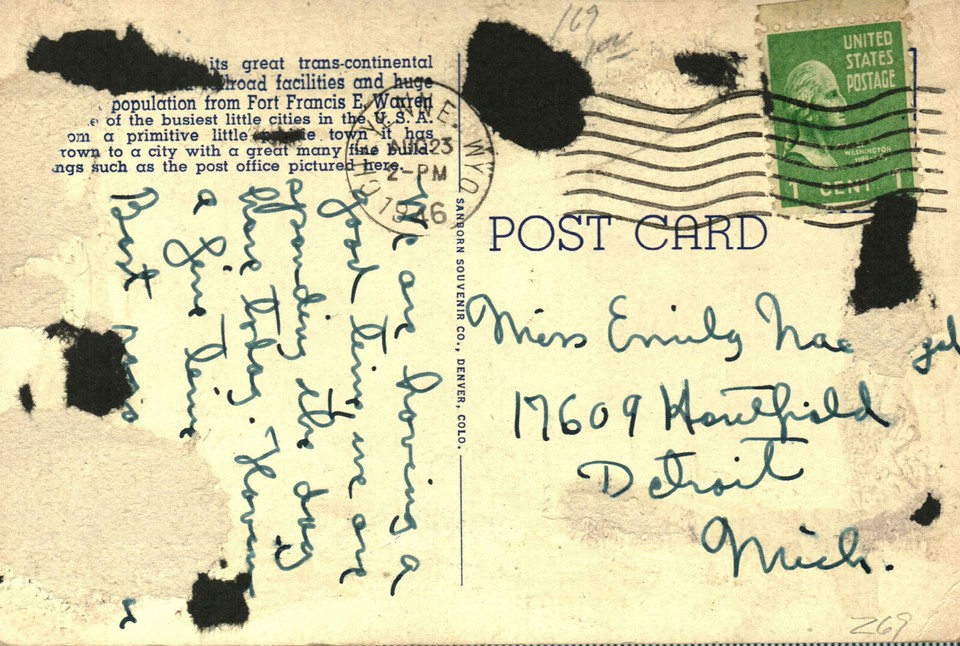 its great trans-continental
railroad facilities and huge
population from Fort Francis E. Warren
of the busiest little cities in the U. S. A.
om a primitive little town it has
rown to a city with a great many fine build-
ngs such as the post office pictured here.
CHEYENNE. WYO
AUG 23
2-PM
1946
169
UNITED
STATES
POSTAGE
WASHINGTON
1 CENT 1
SANBORN SOUVENIR CO., DENVER, COLO.
POST CARD
We are having a
good time we are
spending the day
here today. Having
a fine time
Bert
Miss Emily
17609
Detroit
Mich.
269